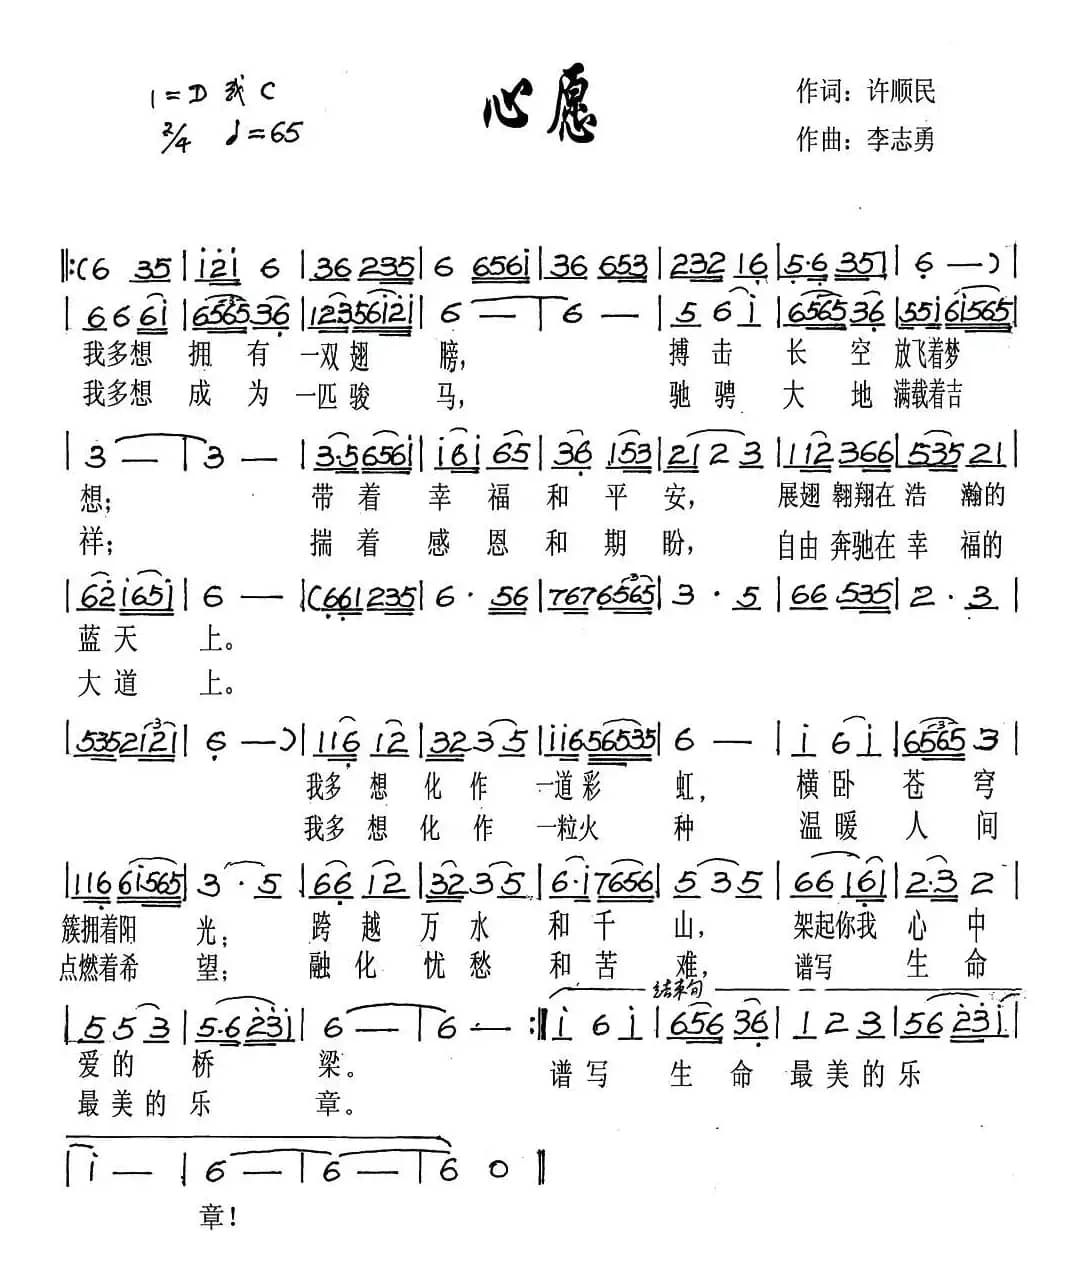 心愿
1=D 或 C
2/4 ♩=65
作词：许顺民
作曲：李志勇
‖:(6 35|i2i 6|36 235|6 656i|36 653|232 16|5·6 35|6 —)|
|66 6i|6565 36|1235 6i2i|6 —|6 —|5 6 i|6565 36|55i 6i565|
我多想 拥 有 一双 翅 膀， 搏 击 长 空 放飞着梦
我多想 成 为 一匹 骏 马， 驰 骋 大 地 满载着吉
|3 —|3 —|3·5 656i|i6i 65|36 153|21 2 3|112 366|535 21|
想； 带 着 幸 福 和 平 安， 展翅 翱翔在 浩 瀚的
祥； 揣 着 感 恩 和 期 盼， 自由 奔驰在 幸 福的
|62 i65i|6 —|(661 235|6· 56|7676 565|3· 5|66 535|2· 3|
蓝 天 上。
大 道 上。
|5352 121|6 —)|116 12|32 3 5|ii6 56535|6 —|i 6 i|6565 3|
我多 想 化 作 一道彩 虹， 横 卧 苍 穹
我多 想 化 作 一粒火 种 温 暖 人 间
|116 6i565|3· 5|66 12|32 3 5|6·i 7656|5 3 5|66 161|2·3 2|
簇拥着阳 光； 跨 越 万 水 和 千 山， 架起你我 心 中
点燃着希 望； 融 化 忧 愁 和 苦 难， 谱写 生 命
结束句
|5 5 3|5·6 23i|6 —|6 — :‖i 6 i|656 36|1 2 3|56 23i|
爱 的 桥 梁。 谱 写 生 命 最 美 的 乐
最 美 的 乐 章。
|i —|6 —|6 —|6 0‖
章！